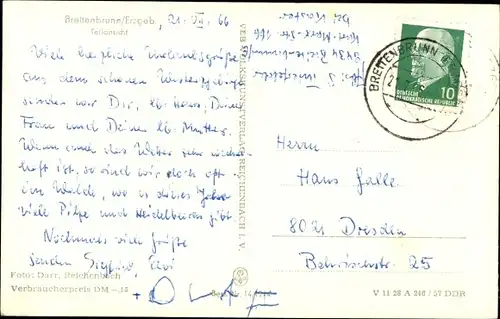 Breitenbrunn/Erzgeb.
Teilansicht
21. VII. 66
Viele herzliche Urlaubsgrüße
aus dem schönen Westerzgebirge
senden wir Dir, lb. Hans, Deiner
Frau und Deiner lb. Mutter.
Wenn auch das Wetter sehr
haft ist, so sind wir doch oft
im Walde, wo es dieses Jahr
viele Pilze und Heidelbeeren gibt.
Nochmals viele Grüße
senden Siegfried,
Foto: Darr, Reichenbach
Verbraucherpreis DM -,15
+ Olaf
VEB VOLKSKUNSTVERLAG REICHENBACH I. V.
9434 Breitenbrunn/
Karl-Marx-Str. 166
bei
BREITENBRUNN
10
DEUTSCHE
DEMOKRATISCHE REPUBLIK
Herrn
Hans Galle
8021 Dresden
25
V 11 28 A 240 / 57 DDR